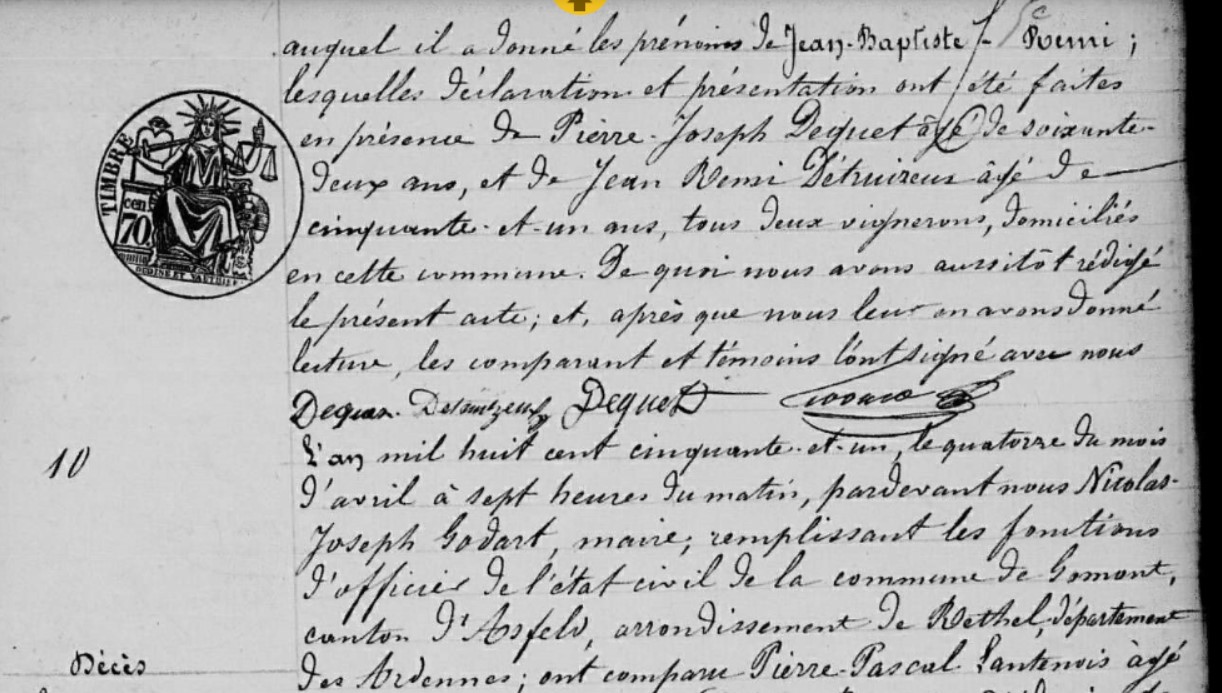 auquel il a donné les prénoms de Jean-Baptiste Remi ;
lesquelles déclaration et présentation ont été faites
en présence de Pierre-Joseph Dequet âgé de soixante-
deux ans, et de Jean Remi Détruizeux âgé de
cinquante-et-un ans, tous deux vignerons, domiciliés
en cette commune. De quoi nous avons aussitôt rédigé
le présent acte ; et, après que nous leur en avons donné
lecture, les comparant et témoins l'ont signé avec nous
TIMBRE
cen
70
Dequet
10
L'an mil huit cent cinquante-et-un, le quatorze du mois
d'avril à sept heures du matin, pardevant nous Nicolas-
Joseph Godart, maire, remplissant les fonctions
d'officier de l'état civil de la commune de Gomont,
canton d'Asfeld, arrondissement de Rethel, département
Décès
des Ardennes ; ont comparu Pierre-Pascal Lantenois âgé